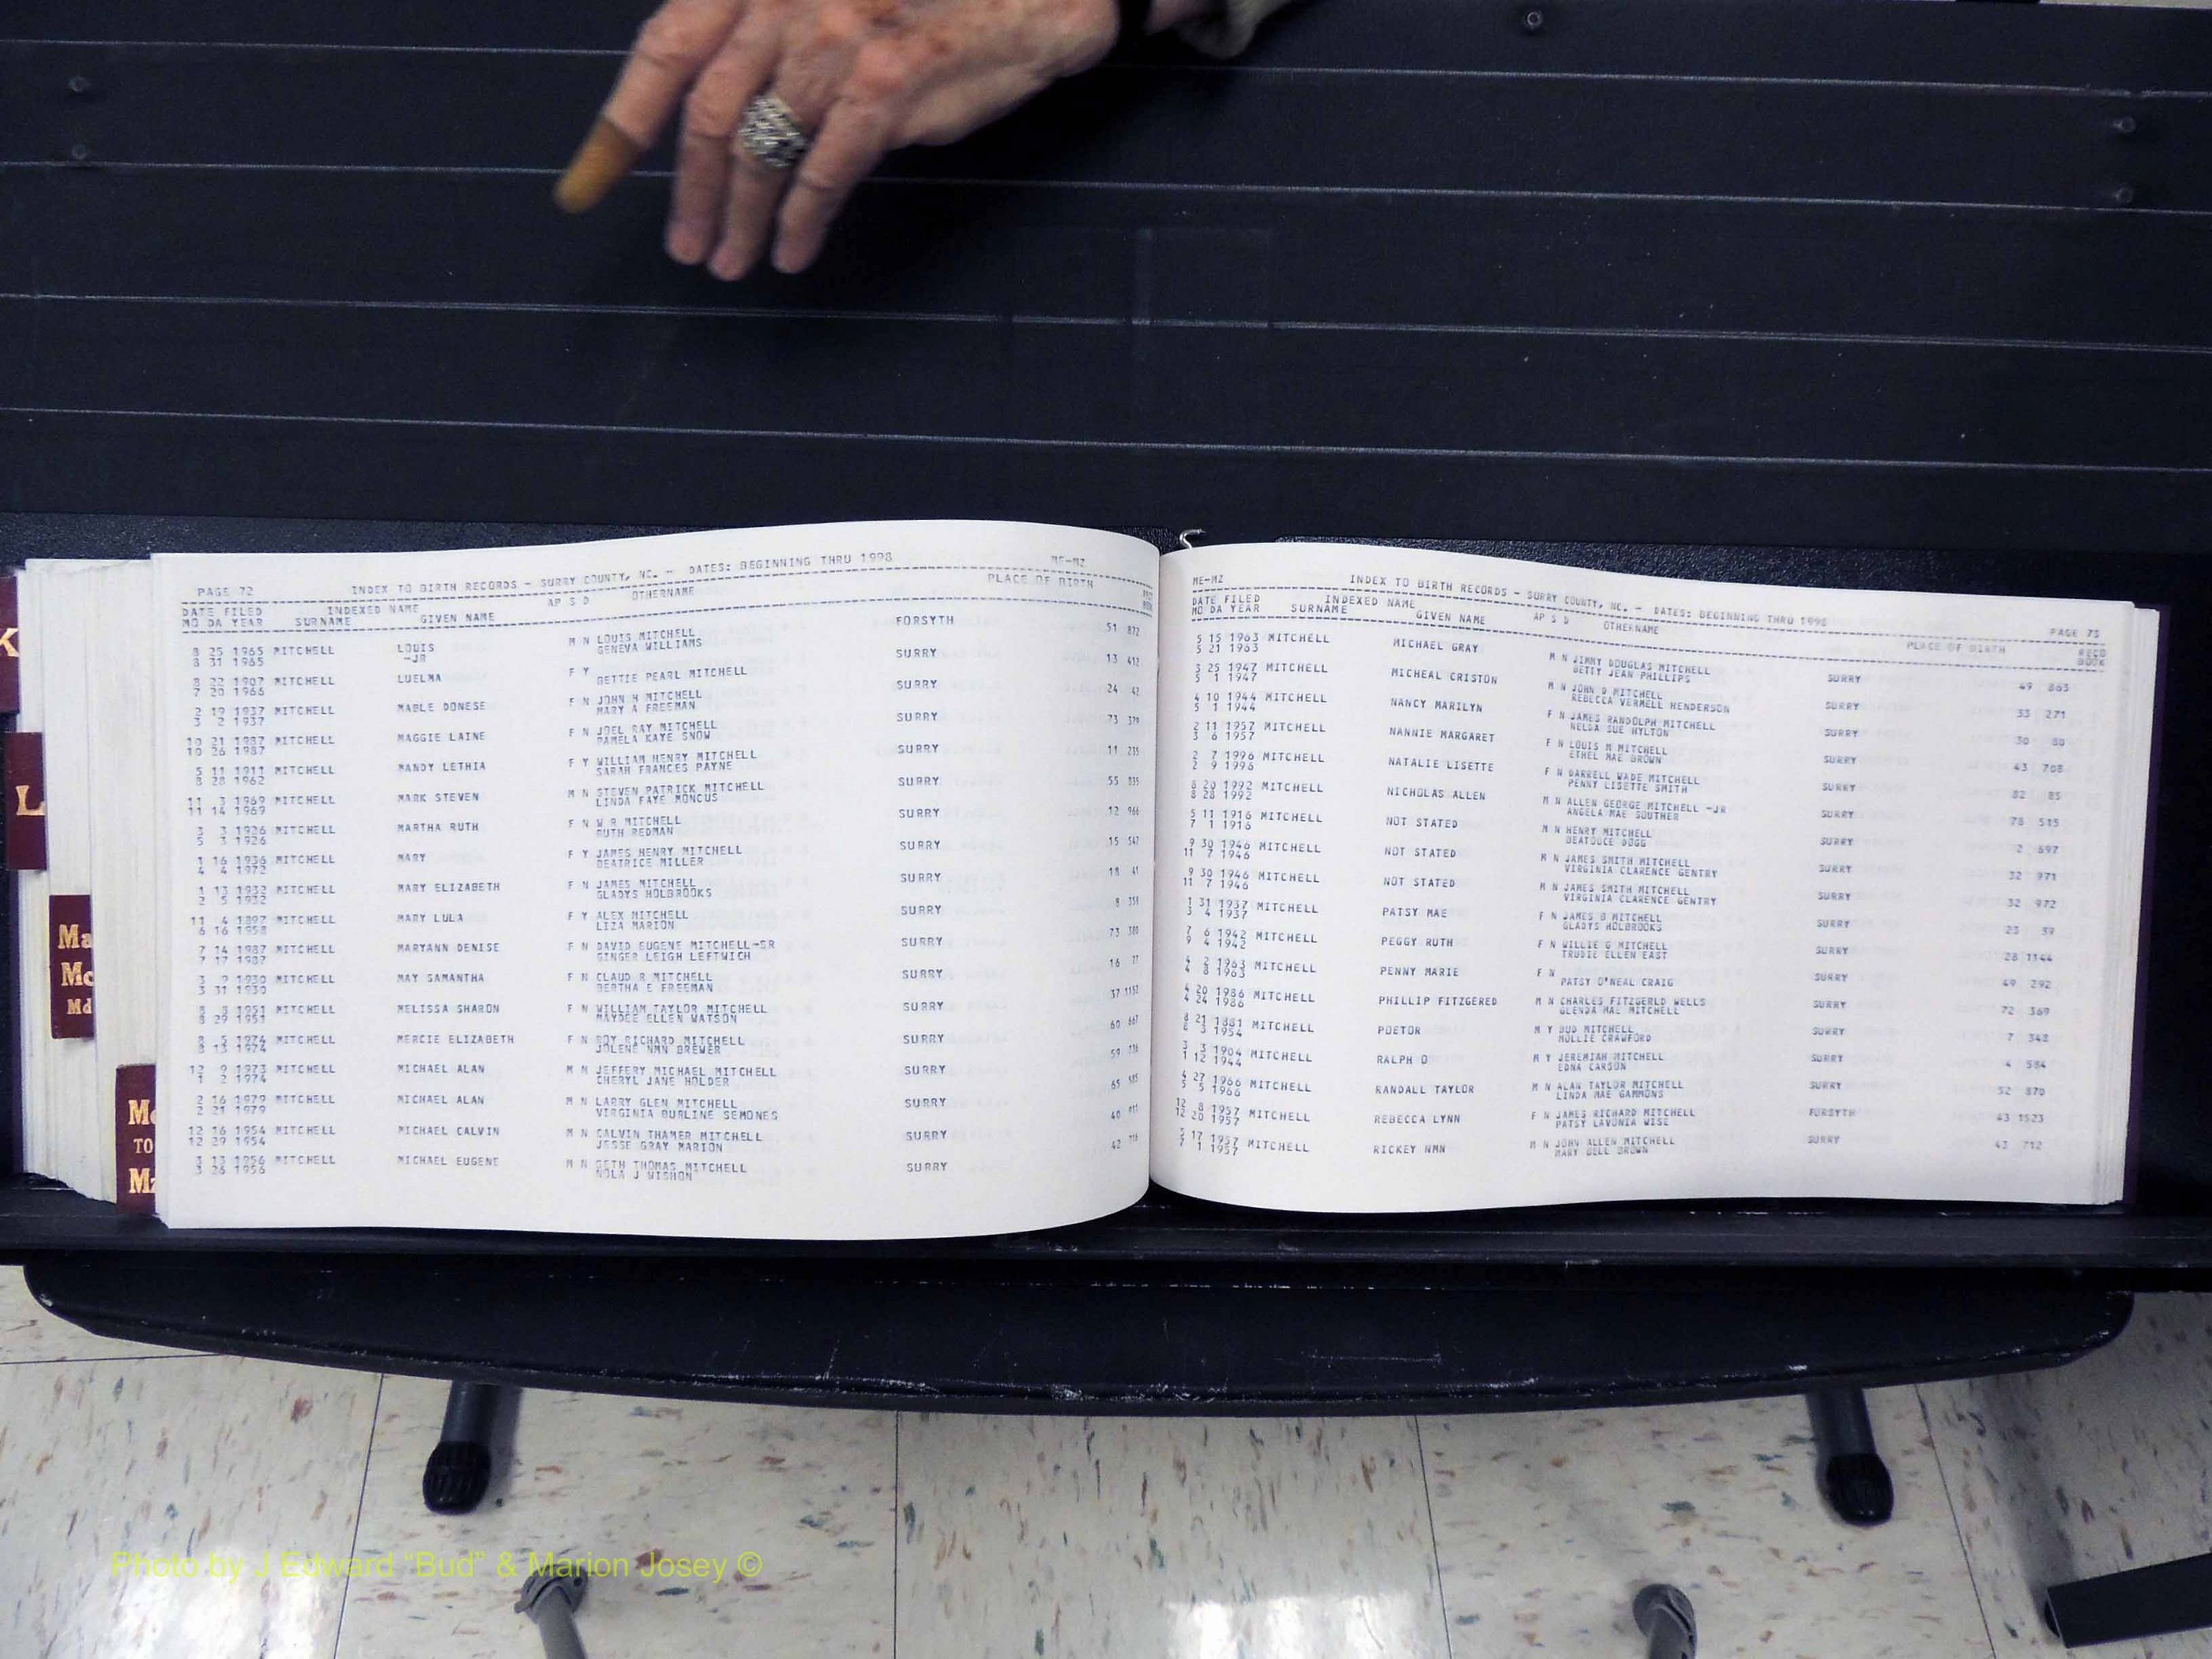 PAGE 72 INDEX TO BIRTH RECORDS - SURRY COUNTY, NC. - DATES: BEGINNING THRU 1998 ME-MZ
DATE FILED INDEXED NAME AP S D OTHERNAME PLACE OF BIRTH
MO DA YEAR SURNAME GIVEN NAME
8 25 1965 MITCHELL LOUIS M N LOUIS MITCHELL FORSYTH 51 872
8 31 1965 -JR GENEVA WILLIAMS
8 22 1907 MITCHELL LUELMA F Y SURRY 13 412
7 20 1966 BETTIE PEARL MITCHELL
2 19 1937 MITCHELL MABLE DONESE F N JOHN H MITCHELL SURRY 24 42
3 2 1937 MARY A FREEMAN
10 21 1987 MITCHELL MAGGIE LAINE F N JOEL RAY MITCHELL SURRY 73 379
10 26 1987 PAMELA KAYE SNOW
5 11 1911 MITCHELL MANDY LETHIA F Y WILLIAM HENRY MITCHELL SURRY 11 235
8 28 1962 SARAH FRANCES PAYNE
11 3 1969 MITCHELL MARK STEVEN M N STEVEN PATRICK MITCHELL SURRY 55 835
11 14 1969 LINDA FAYE MONCUS
3 3 1926 MITCHELL MARTHA RUTH F N W R MITCHELL SURRY 12 966
5 3 1926 RUTH REDMAN
1 16 1936 MITCHELL MARY F Y JAMES HENRY MITCHELL SURRY 15 547
4 4 1972 BEATRICE MILLER
1 13 1932 MITCHELL MARY ELIZABETH F N JAMES MITCHELL SURRY 18 41
2 5 1932 GLADYS HOLBROOKS
11 4 1897 MITCHELL MARY LULA F Y ALEX MITCHELL SURRY 8 351
6 16 1958 LIZA MARION
7 14 1987 MITCHELL MARYANN DENISE F N DAVID EUGENE MITCHELL-SR SURRY 73 380
7 17 1987 GINGER LEIGH LEFTWICH
3 9 1930 MITCHELL MAY SAMANTHA F N CLAUD R MITCHELL SURRY 16 77
3 31 1930 BERTHA E FREEMAN
8 8 1951 MITCHELL MELISSA SHARON F N WILLIAM TAYLOR MITCHELL SURRY 37 1152
8 29 1951 MAYDEE ELLEN WATSON
8 5 1974 MITCHELL MERCIE ELIZABETH F N ROY RICHARD MITCHELL SURRY 60 667
8 13 1974 JOLENE NMN BREWER
12 9 1973 MITCHELL MICHAEL ALAN M N JEFFERY MICHAEL MITCHELL SURRY 59
1 2 1974 CHERYL JANE HOLDER
2 16 1979 MITCHELL MICHAEL ALAN M N LARRY GLEN MITCHELL SURRY 65 585
2 21 1979 VIRGINIA BURLINE SEMONES
12 16 1954 MITCHELL MICHAEL CALVIN M N CALVIN THAMER MITCHELL SURRY 40
12 29 1954 JESSE GRAY MARION
3 13 1956 MITCHELL MICHAEL EUGENE M N SETH THOMAS MITCHELL SURRY 42
3 26 1956 NOLA J WISHON
ME-MZ INDEX TO BIRTH RECORDS - SURRY COUNTY, NC. - DATES: BEGINNING THRU 1998 PAGE 73
DATE FILED INDEXED NAME AP S D OTHERNAME PLACE OF BIRTH RECD
MO DA YEAR SURNAME GIVEN NAME BOOK
5 15 1963 MITCHELL MICHAEL GRAY M N JIMMY DOUGLAS MITCHELL SURRY 49 863
5 21 1963 BETTY JEAN PHILLIPS
3 25 1947 MITCHELL MICHEAL CRISTON M N JOHN D MITCHELL SURRY 33 271
5 1 1947 REBECCA VERMELL HENDERSON
4 10 1944 MITCHELL NANCY MARILYN F N JAMES RANDOLPH MITCHELL SURRY 30 80
5 1 1944 NELDA SUE HYLTON
2 11 1957 MITCHELL NANNIE MARGARET F N LOUIS M MITCHELL SURRY 43 708
3 6 1957 ETHEL MAE BROWN
2 7 1996 MITCHELL NATALIE LISETTE F N DARRELL WADE MITCHELL SURRY 82 85
2 9 1996 PENNY LISETTE SMITH
8 20 1992 MITCHELL NICHOLAS ALLEN M N ALLEN GEORGE MITCHELL -JR SURRY 78 515
8 28 1992 ANGELA MAE SOUTHER
5 11 1916 MITCHELL NOT STATED M N HENRY MITCHELL SURRY 2 697
7 1 1916 BEATOUCE DOGG
9 30 1946 MITCHELL NOT STATED M N JAMES SMITH MITCHELL SURRY 32 971
11 7 1946 VIRGINIA CLARENCE GENTRY
9 30 1946 MITCHELL NOT STATED M N JAMES SMITH MITCHELL SURRY 32 972
11 7 1946 VIRGINIA CLARENCE GENTRY
1 31 1937 MITCHELL PATSY MAE F N JAMES B MITCHELL SURRY 23 39
3 4 1937 GLADYS HOLBROOKS
7 6 1942 MITCHELL PEGGY RUTH F N WILLIE G MITCHELL SURRY 28 1144
9 4 1942 TRUDIE ELLEN EAST
4 2 1963 MITCHELL PENNY MARIE F N SURRY 49 292
4 8 1963 PATSY O'NEAL CRAIG
4 20 1986 MITCHELL PHILLIP FITZGERED M N CHARLES FITZGERLD WELLS SURRY 72 369
4 24 1986 GLENDA MAE MITCHELL
8 21 1881 MITCHELL POETOR M Y BUD MITCHELL SURRY 7 348
8 3 1954 MOLLIE CRAWFORD
3 3 1904 MITCHELL RALPH O M Y JEREMIAH MITCHELL SURRY 4 584
1 12 1944 EDNA CARSON
4 27 1966 MITCHELL RANDALL TAYLOR M N ALAN TAYLOR MITCHELL SURRY 52 870
5 5 1966 LINDA MAE GAMMONS
12 8 1957 MITCHELL REBECCA LYNN F N JAMES RICHARD MITCHELL FORSYTH 43 1523
12 20 1957 PATSY LAVONIA WISE
5 17 1957 MITCHELL RICKEY NMN M N JOHN ALLEN MITCHELL SURRY 43 712
7 1 1957 MARY BELL BROWN
K
L
Ma
Mc
Md
Me
TO
Mz
Photo by J Edward “Bud” & Marion Josey ©